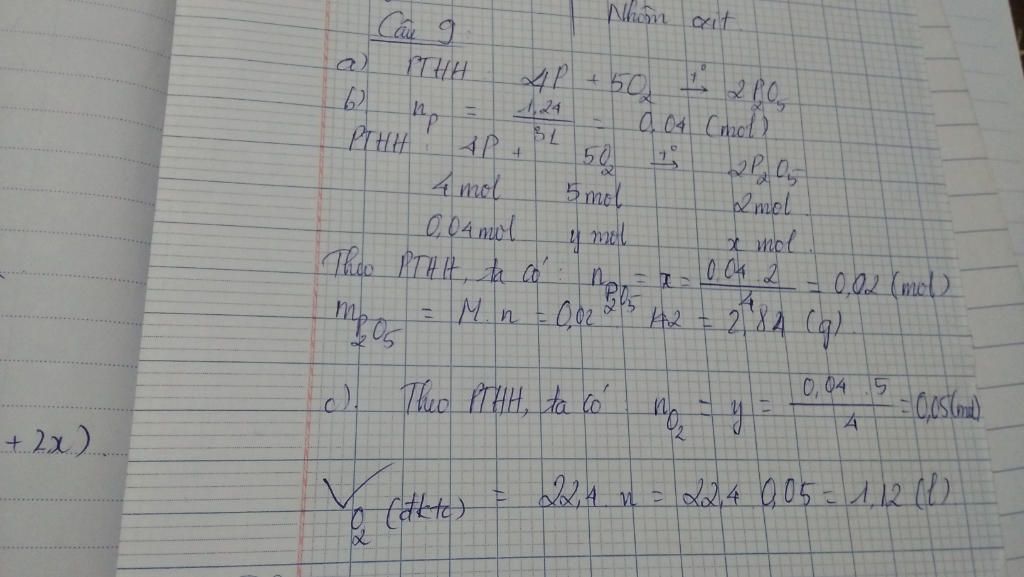 Nhôm oxit
Câu 9
a) PTHH : 4P + 5O₂ t°→ 2P₂O₅
b) nP = 1,24/31 = 0,04 (mol)
PTHH : 4P + 5O₂ t°→ 2P₂O₅
4 mol 5 mol 2 mol
0,04 mol y mol x mol
Theo PTHH, ta có : nP₂O₅ = x = 0,04 . 2/4 = 0,02 (mol)
mP₂O₅ = M . n = 0,02 . 142 = 2,84 (g)
c). Theo PTHH, ta có : nO₂ = y = 0,04 . 5/4 = 0,05 (mol)
+ 2x)
VO₂ (đktc) = 22,4 . n = 22,4 . 0,05 = 1,12 (l)